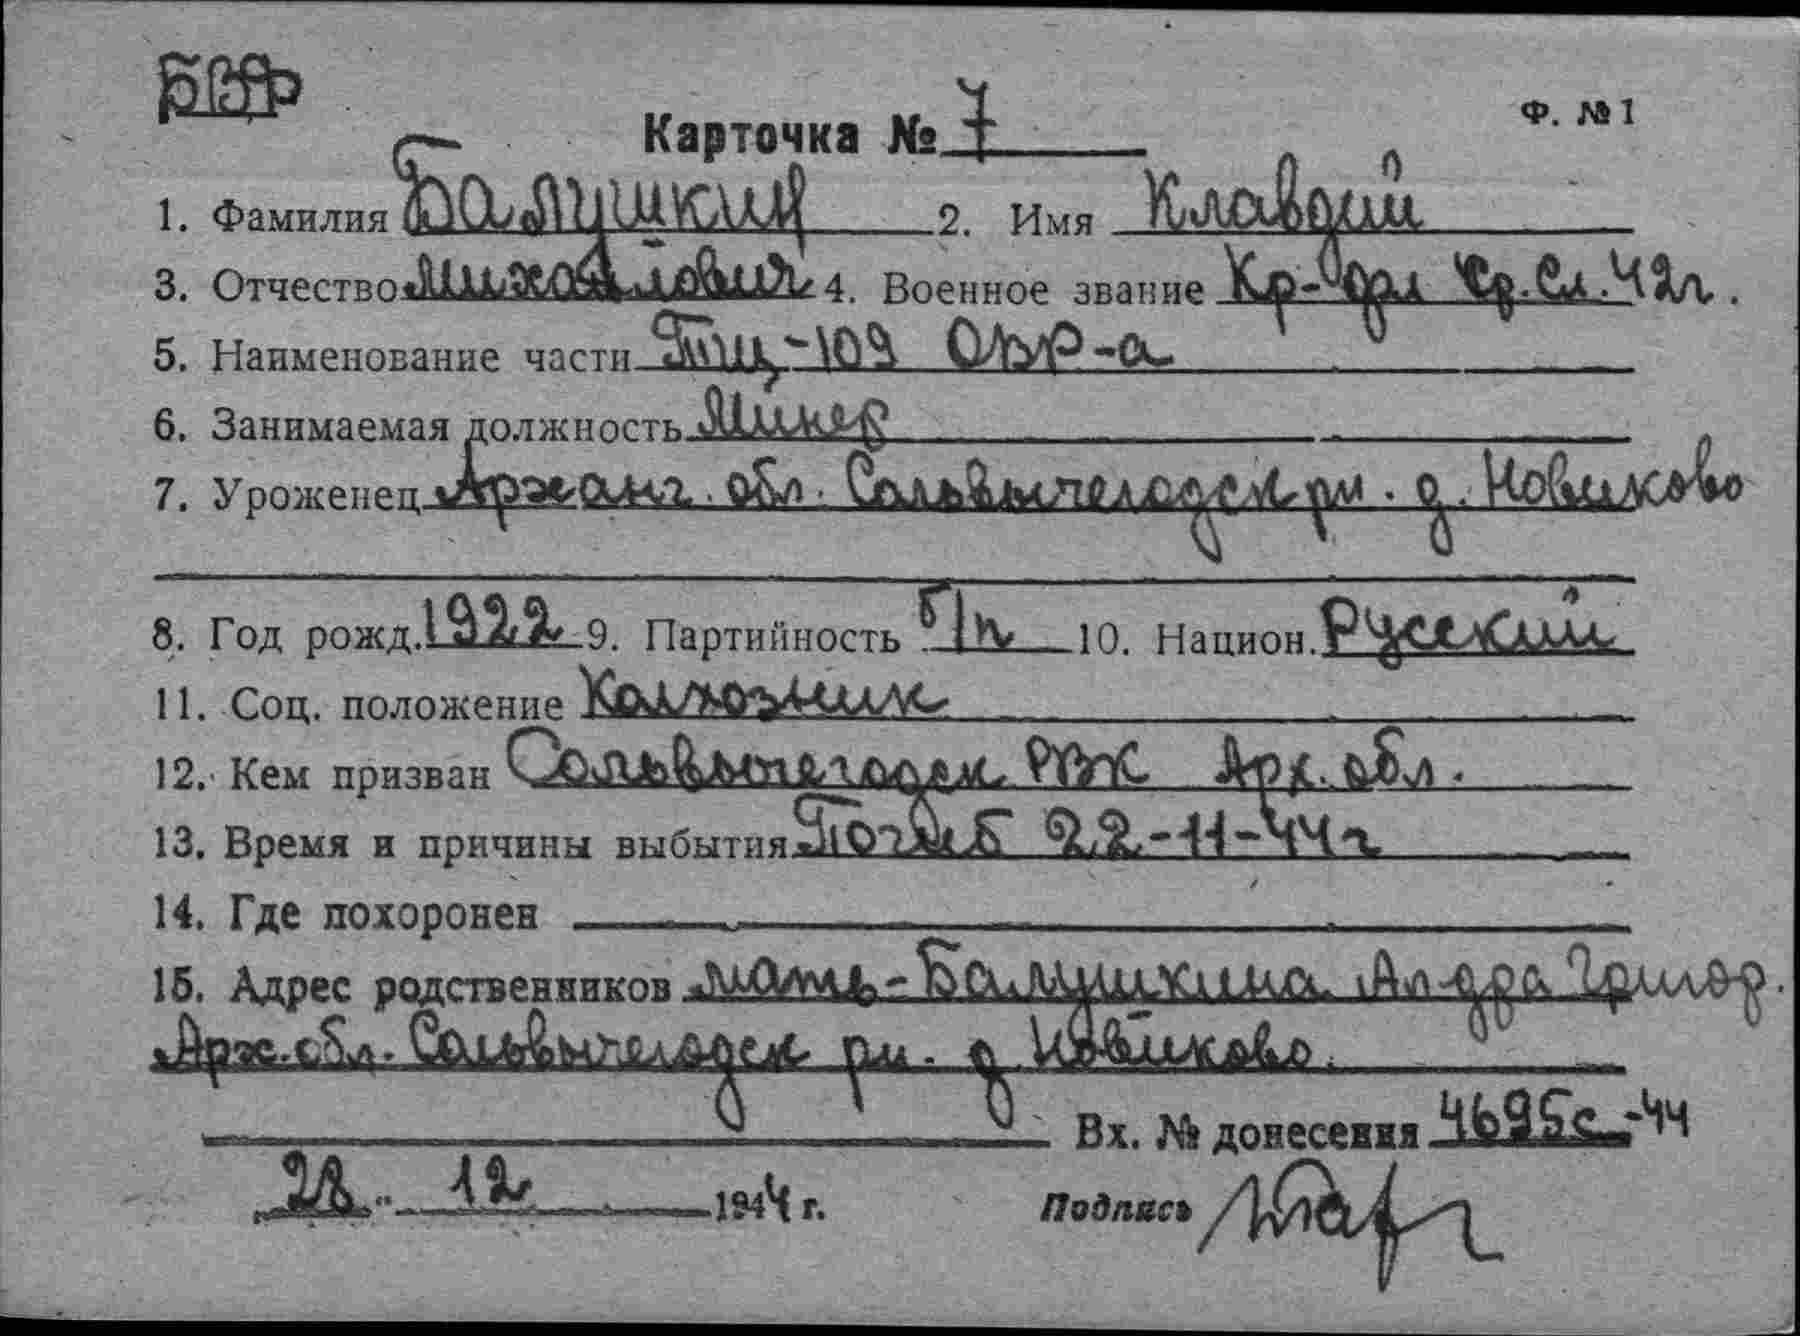 КБФ
Карточка № 7
Ф. № 1
1. Фамилия Балушкин 2. Имя Клавдий
3. Отчество Михайлович 4. Военное звание Кр-фл Ср. Сл. 42г.
5. Наименование части Тщ-109 ОВР-а
6. Занимаемая должность Минер
7. Уроженец Арханг. обл. Сольвычегодск рн. д. Новиково
8. Год рожд. 1922 9. Партийность б/п 10. Национ. Русский
11. Соц. положение Колхозник
12. Кем призван Сольвычегодск РВК Арх. обл.
13. Время и причины выбытия Погиб 22-11-44г
14. Где похоронен
15. Адрес родственников мать-Балушкина Ал-дра Григор.
Арх. обл. Сольвычегодск рн. д. Новиково.
Вх. № донесения 4695с-44
28 " 12 1944 г. Подпись